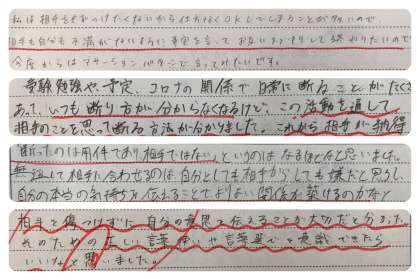 私は相手をきずつけたくないからしかたなくOKしてしまうことが多いので、
相手も自分も不満がないように予定を言っておたがいスッキリして終わりたいので
今度からはアサーションパターンで言ってみたいです。
受験勉強や予定、コロナの関係で日常に断ることがたくさん
あって、いつも断り方が分からなくなるけど、この活動を通して
相手のことを思って断る方法が分かりました。これから相手が納得
"断ったのは用件であり相手ではない"というのはなるほどなと思いました。
無理して相手に合わせるのは自分としても相手も嫌だと思うし、
自分の本当の気持ちを伝えることでよりよい関係が築けるのかなと
相手を傷つけずに自分の意思を伝えることが大切だと分かった。
そのための正しい言葉使いや言葉選びを意識できたら
いいなと思いました。